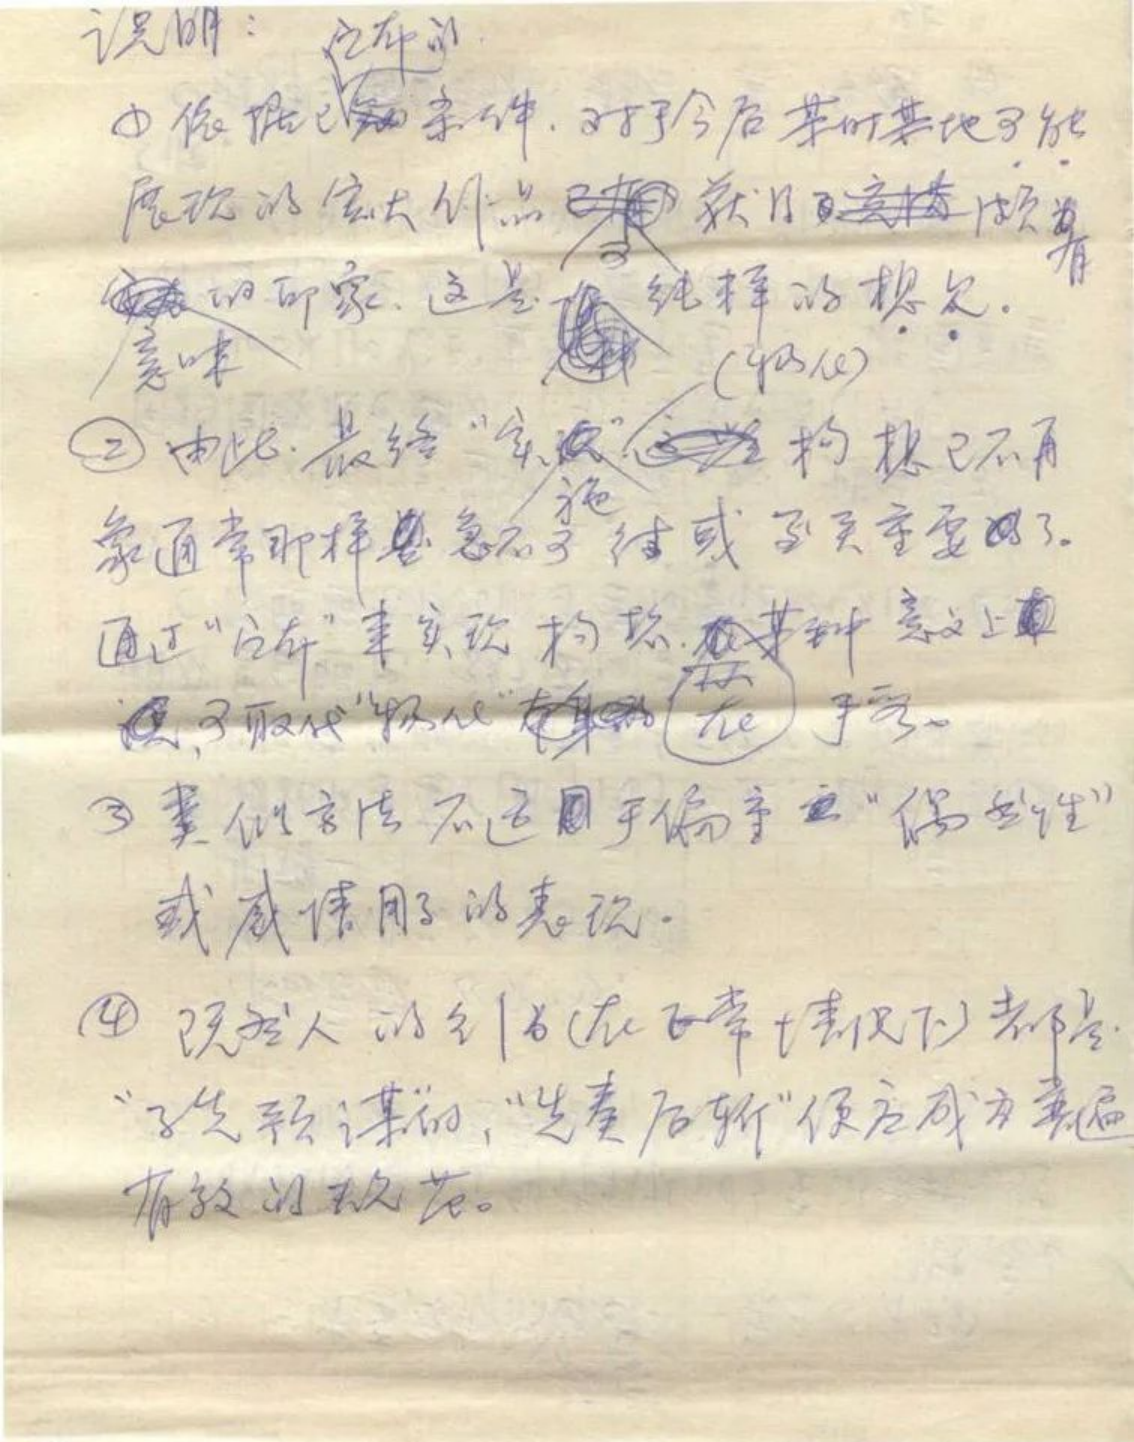 说明：
它在的
① 依据已条件．对于今后某时某地可能
展现的宏大作品 可 获得颇有
意味的印象．这是纯粹的想象．
(物化)
② 由此．最终"实施" 构想已不再
象通常那样急不可待或至关重要了。
通过"它在"来实现构想．某种意义上
可取代"物化" 在 手容。
③ 类似方法不适用于偏重"偶然性"
或感情用事的表现．
④ 既然人的行为(在正常情况下)都是．
"事先预谋"的，"先奏后斩"便应成为普遍
有效的规范。